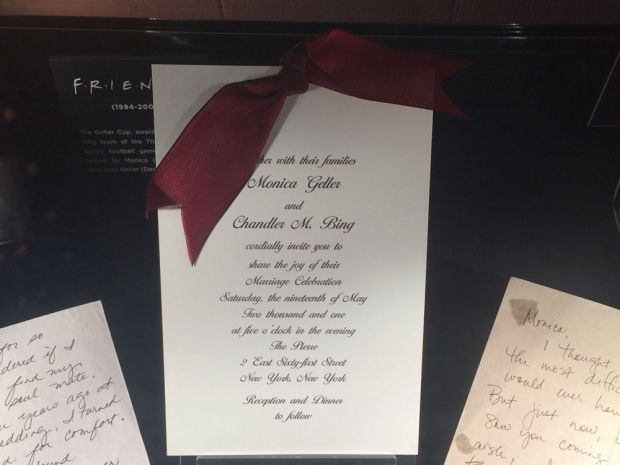 F·R·I·E·N
(1994-200
The Geller Cup, award
ning team of the Th
tennis football game
Monica
and Ross Geller (Dav
her with their families
Monica Geller
and
Chandler M. Bing
cordially invite you to
share the joy of their
Marriage Celebration
Saturday, the nineteenth of May
Two thousand and one
at five o'clock in the evening
The Pierre
2 East Sixty-first Street
New York, New York
Reception and Dinner
to follow
for so
dered if I
find my
soul mate.
years ago at
edding. I turned
for comfort.
found
Monica,
I thought
the most diffic
would ever ha
But just now,
saw you coming
aisle,